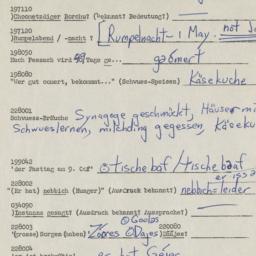 197110
)Chometzdiger Borchu? (bekannt? Bedeutung?)
197110
)Rumpelabend / -nacht ? [Rumpelnacht - 1 May. not
198050
Nach Pessach wird 49 Tage ge... gaomert
198080
"Wer gut oumert, bekommt..." (Schwuos-Speisen) Käsekuche
228001
Schwuoss-Bräuche Synagoge geschmückt, Häuser mi
Schwueslernen, milchding gegessen, Käseku
199043
'der Fasttag am 9. Ouf' tischebof / tischebaaf
228002 er iss a
"(Er hat) nebbich (Hunger)" (Ausdruck bekannt) nebbich = leider
034090
)Instanz gesagt? (Ausdruck bekannt? Aussprache?)
228003 220080
(grosse) Sorgen (haben) Zoores Dajes
228004
er hot